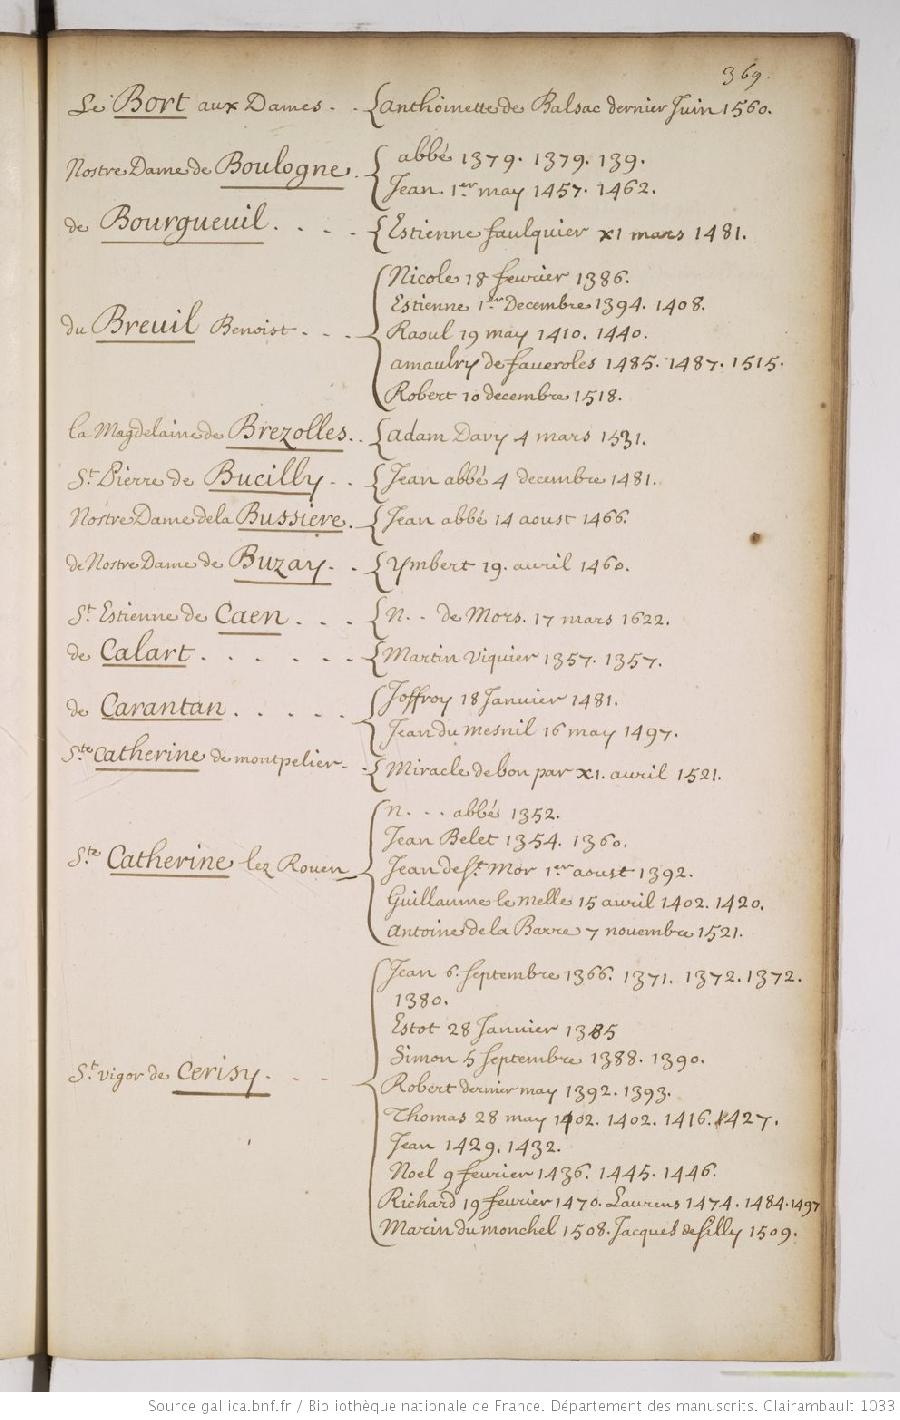 369.
Le Bort aux Dames. . . {anthoinette de Balsac dernier Juin 1560.
Nostre Dame de Boulogne. { abbé 1379. 1379. 139.
Jean 1er may 1457. 1462.
de Bourgueuil . . . . {Estienne faulquier x1 mars 1481.
du Breuil Benoist. . . { Nicole 18 fevrier 1386.
Estienne 1er Decembre 1394. 1408.
Raoul 19 may 1410. 1440.
amaulry de faveroles 1485. 1487. 1515.
Robert 10 decembre 1518.
la Magdelaine de Brezolles. . {adam Davy 4 mars 1531.
St. Pierre de Bucilly. . {Jean abbé 4 decembre 1481.
Nostre Dame de la Bussiere. {Jean abbé 14 aoust 1466.
de Nostre Dame de Buzay. . {Ymbert 19. avril 1460.
St. Estienne de Caen . . . {n. . . de Mors. 17 mars 1622.
de Calart . . . . . . {Martin Viquier 1357. 1357.
de Carantan . . . . . { Joffroy 18 Janvier 1481.
Jean du mesnil 16 may 1497.
Ste. Catherine de montpelier- - {Miracle de bon par x1. avril 1521.
Ste. Catherine lez Rouen { n. . . . abbé 1352.
Jean Belet 1354. 1360.
Jean de St. Mor 1er aoust 1392.
Guillaume le melle 15 avril 1402. 1420.
antoine de la Barre 7 novembre 1521.
St. vigor de Cerisy. . . { Jean 6. septembre 1366. 1371. 1372. 1372.
1380.
Estot 28 Janvier 1385
Simon 5 septembre 1388. 1390.
Robert dernier may 1392. 1393.
Thomas 28 may 1402. 1402. 1416. 1427.
Jean 1429. 1432.
Noel 9 fevrier 1436. 1445. 1446.
Richard 19 fevrier 1470. Laurens 1474. 1484. 1497
Marin du monchel 1508. Jacques de silly 1509.
Source gallica.bnf.fr / Bibliothèque nationale de France. Département des manuscrits. Clairambault 1033